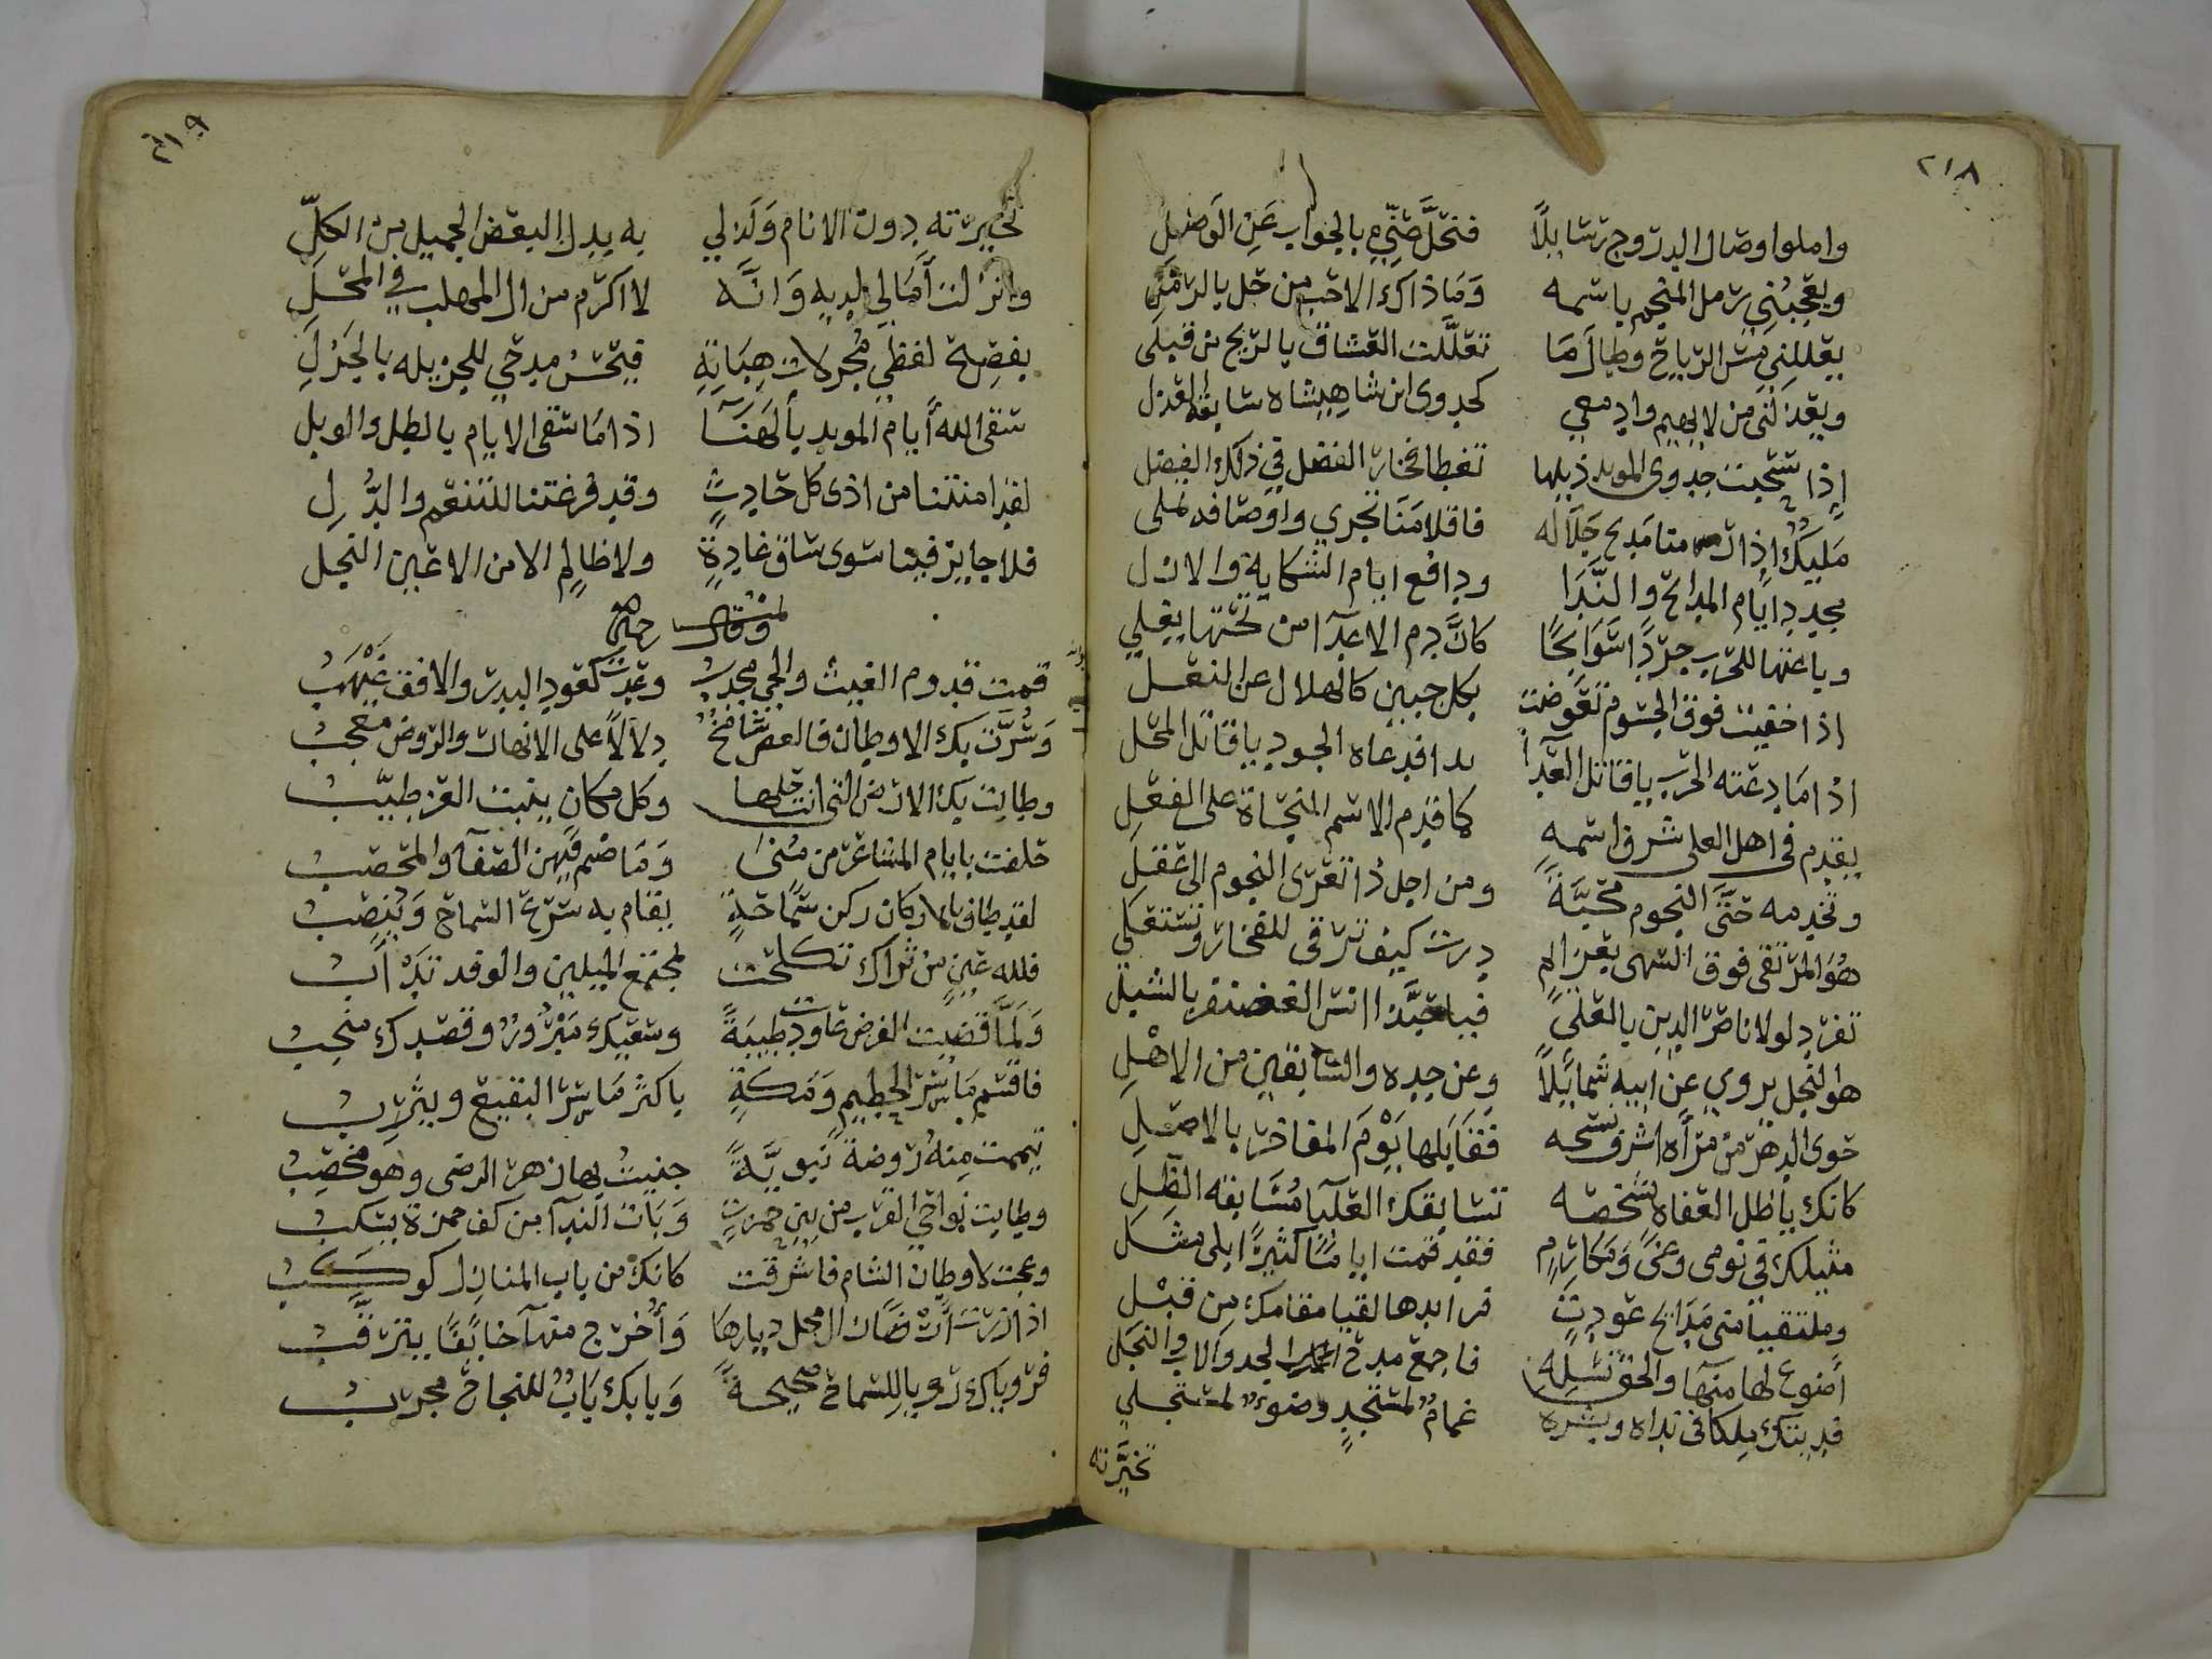 ٢١٨
واملوا وصال البدر وج رسايلاً فتخلصني بالجواب عن الوصل
ويعجبني رمل المنجم باسمه وما ذاك الا حب من حل بالرمل
يعللني مس الرياح وطال ما تعللت العشاق بالريح من قبلي
ويعذلني من لا يهيم وادمعي كجدوى ابن شاهنشاه سابقة العذل
إذا سحبت جدوى المويد ذيلها تغطا فخار الفضل في ذلك الفضل
مليك اذا مديح جلاله فاقلامنا تجري واوصافه تملي
مجدد ايام المدائح والندا ودافع ايام الشكاية والازل
وباعثها للحرب جرداً سوابحاً كان دم الاعدا من تحتها يغلي
اذا خفيت فوق الجسوم تعوضت بكل جبين كالهلال عن النعل
اذا ما دعته الحرب يا قاتل العدا بدا فدعاه الجود يا قاتل المحل
يقدم في اهل العلى شرف اسمه كما قدم الاسم النحاة على الفعل
وتخدمه حتى النجوم محبة ومن اجل ذا تعزى النجوم الى عقل
هو المرتقى فوق السهى بعزايم درت كيف ترقى للفخار وتستعلي
تفرد لولا ناصر الدين بالعلى فيا حبذا انس الغضنفر بالشبل
هو النجل يروي عن ابيه شمائلاً وعن جده والسابقين من الاهل
حوى الدهر من مرآه اشرف نسخه فقابلها يوم المفاخر بالاصل
كانك ياظل العفاة بشخصه تسابقك العليا مسابقه الظل
مثيلك في نومى وغى ومكارم فقد قمت اياماً كثيرًا بلى مثل
وملتقيا منى مدائح عودت فرايدها لقيا مقامك من قبل
أضوع لها منها والحق نسله فاجمع مدح الجد والاب والنجل
فديتك ملكا في نداه وبشره غمام لمستجدٍ وضوء لمستجلي
تخيرته
٢١٩
تخيرته دون الانام ولذ لي به بدل البعض الجميل من الكل
وانزلت آمالي لديه وانه لاكرم من ال المهلب في المحل
بفصح لفظي مجزلات هباته فيحسن مدحي للجزيله بالجزل
سقى الله أيام المويد بالهنا اذا ما سقى الايام بالطل والوبل
لقد امنتنا من اذى كل حادث وقد فرغتنا للتنعم والدل
فلا جايز فينا سوى ساق غادة ولا ظالم الا من الاعين النجل
وقال رحمه الله
قدمت قدوم الغيث والحي مجدب وعدت كعود البدر والافق غيهب
وسرت بك الاوطان فالعصر شامخ دلالاً على الانهار والروض معجب
وطابت بك الارض التي انت حلها وكل مكان ينبت العز طيب
حلفت بايام المشاعر من منى وما ضم فيهن الصفا والمحصب
لقد طاف بالاركان ركن سماحة يقام به شرع السماح وينصب
فلله عين من ثراك تكحلت لمجتمع الميلين والوفد تدأب
ولما قضيت الفرض عاودت طيبة وسعيك مبرور وقصدك منجب
فاقسم ما سر الحطيم ومكة باكثر ما سر البقيع ويثرب
تيممت منه روضة نبوية جنيت بها زهر الرضى وهو مخصب
وطابت نواحي القرب من بين حمزت وبات الندا من كف حمزة يسكب
وعجت لاوطان الشام فاشرقت كانك من باب المنازل كوكب
اذا زرت أرضا زال محل ديارها وأخرج منها خائفًا يترقب
فروياك رويا للسماح صحيحة وبابك باب للنجاح مجرب